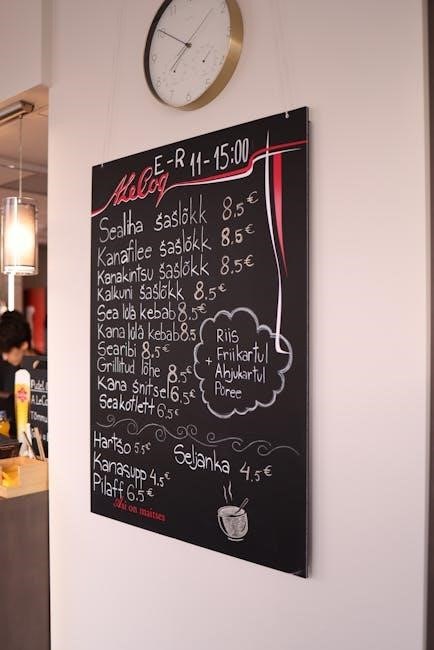 E-R 11-15:00
ALeCoq
Sealiha šašlõkk 8.5€
Kanafilee šašlõkk 8.5€
Kanakintsu šašlõkk 8.5€
Kalkuni šašlõkk 8.5€
Sea lula kebab 8.5€
Kana lula kebab 8.5
Searibi 8.5€
Grillitud lõhe 8.5€
Kana šnitsel 6.5€
Seakotlett 6.5€
Riis
+ Friikartul
Ahjukartul
Püree
Hartšo 5.5€
Kanasupp 4.5€
Pilaff 6.5€
Seljanka 4.5€
Asi on maitses